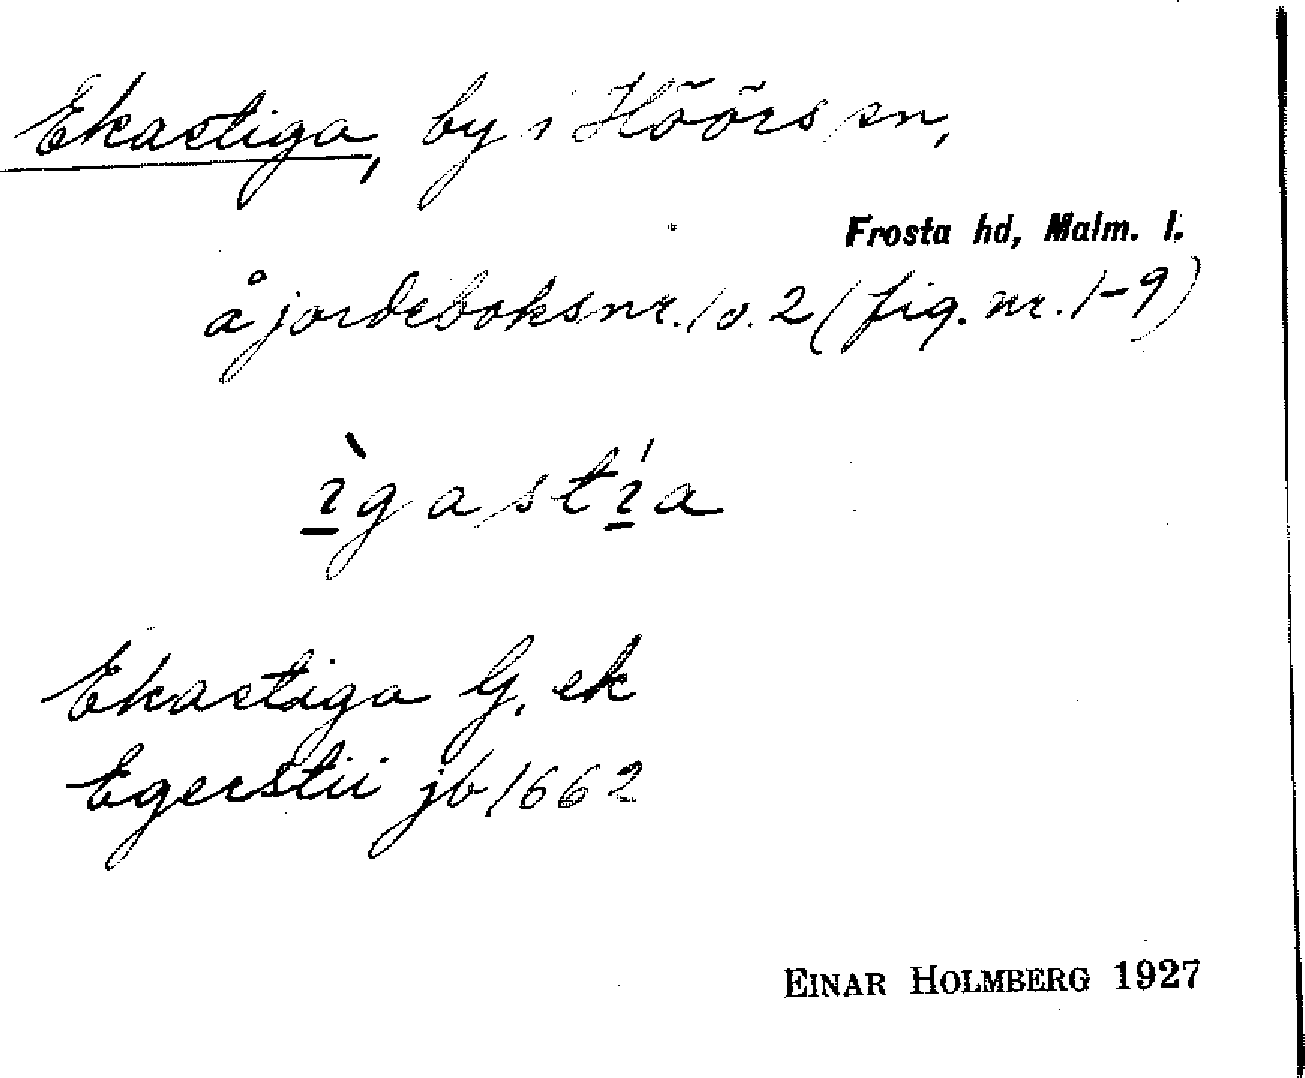 Ekastiga, by i Höörs sn,
Frosta hd, Malm. l.
å jordeboksnr. 1 o. 2 (fig. nr. 1-9)
ı̱̀gastı̱́a
Ekastiga G. ek
Egerstii jb 1662
EINAR HOLMBERG 1927